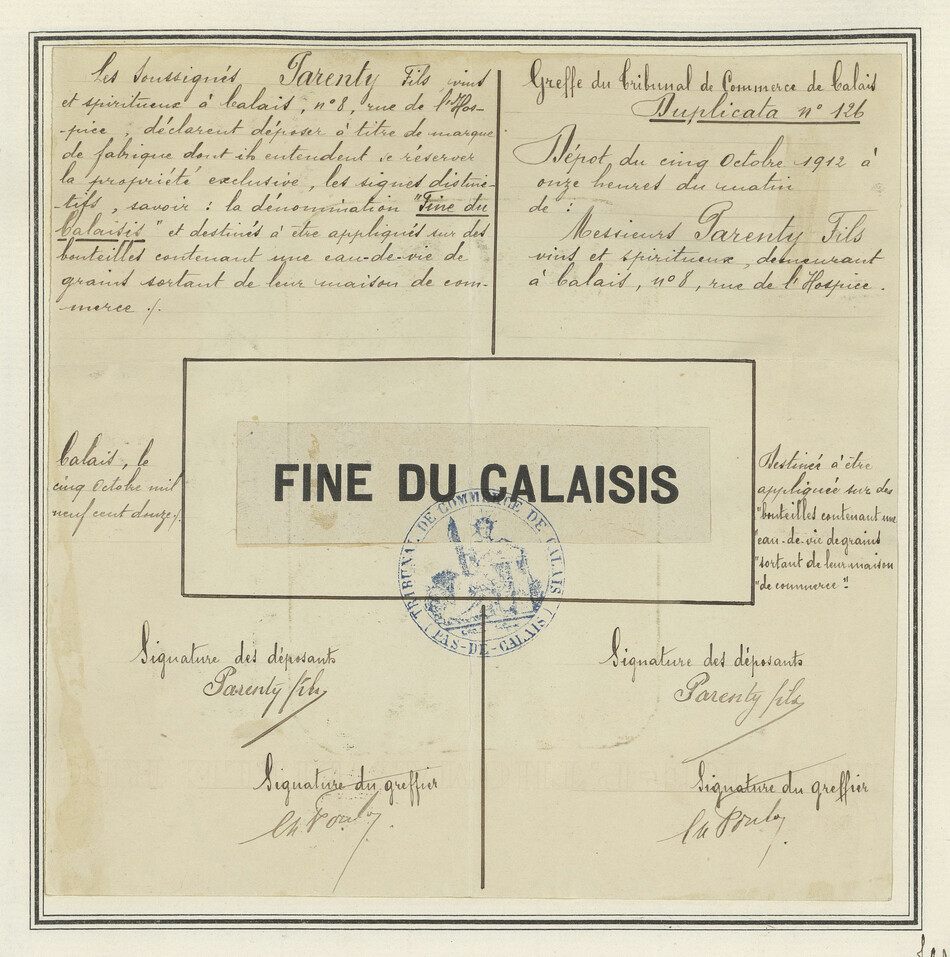 Les Soussignés Parenty Fils, vins
et spiritueux à Calais, n° 8, rue de l'Hos-
-pice, déclarent déposer à titre de marque
de fabrique dont ils entendent se réserver
la propriété exclusive, les signes distinc-
-tifs, savoir : la dénomination "Fine du
Calaisis" et destinés à être appliqués sur des
bouteilles contenant une eau-de-vie de
grains sortant de leur maison de com-
merce ./.
Greffe du Tribunal de Commerce de Calais
Duplicata n° 126
Dépot du cinq Octobre 1912 à
onze heures du matin
de :
Messieurs Parenty Fils
vins et spiritueux, demeurant
à Calais, n° 8, rue de l'Hospice.
Calais, le
cinq Octobre mil
neuf cent douze ./.
FINE DU CALAISIS
TRIBUNAL DE COMMERCE DE CALAIS
(PAS-DE-CALAIS)
Destinée à être
appliquée sur des
"bouteilles contenant une
"eau-de-vie de grains
"sortant de leur maison
"de commerce"
Signature des déposants
Parenty fils
Signature du greffier
Signature des déposants
Parenty fils
Signature du greffier